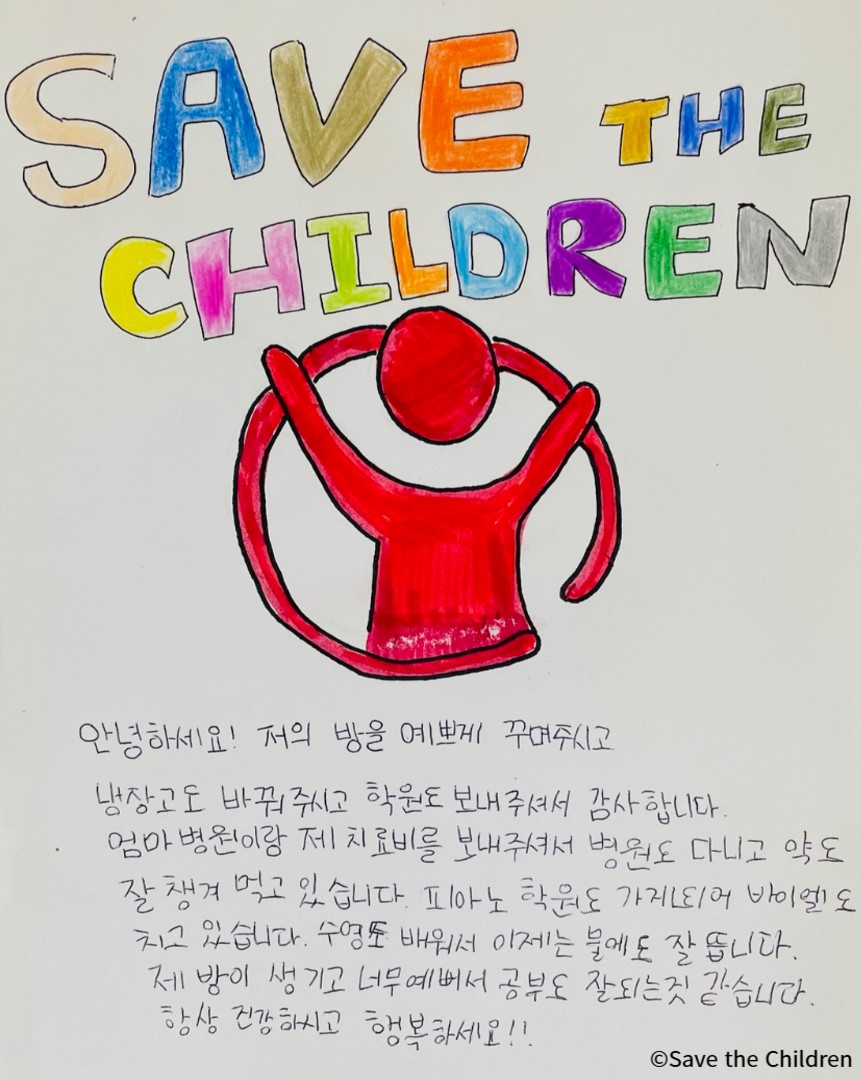 SAVE THE
CHILDREN
안녕하세요! 저의 방을 예쁘게 꾸며주시고
냉장고도 바꿔주시고 학원도 보내주셔서 감사합니다.
엄마병원이랑 제 치료비를 보내주셔서 병원도 다니고 약도
잘 챙겨 먹고 있습니다. 피아노 학원도 가게되어 바이엘도
치고 있습니다. 수영도 배워서 이제는 물에도 잘 뜹니다.
제 방이 생기고 너무예뻐서 공부도 잘되는것 같습니다.
항상 건강하시고 행복하세요!!
©Save the Children